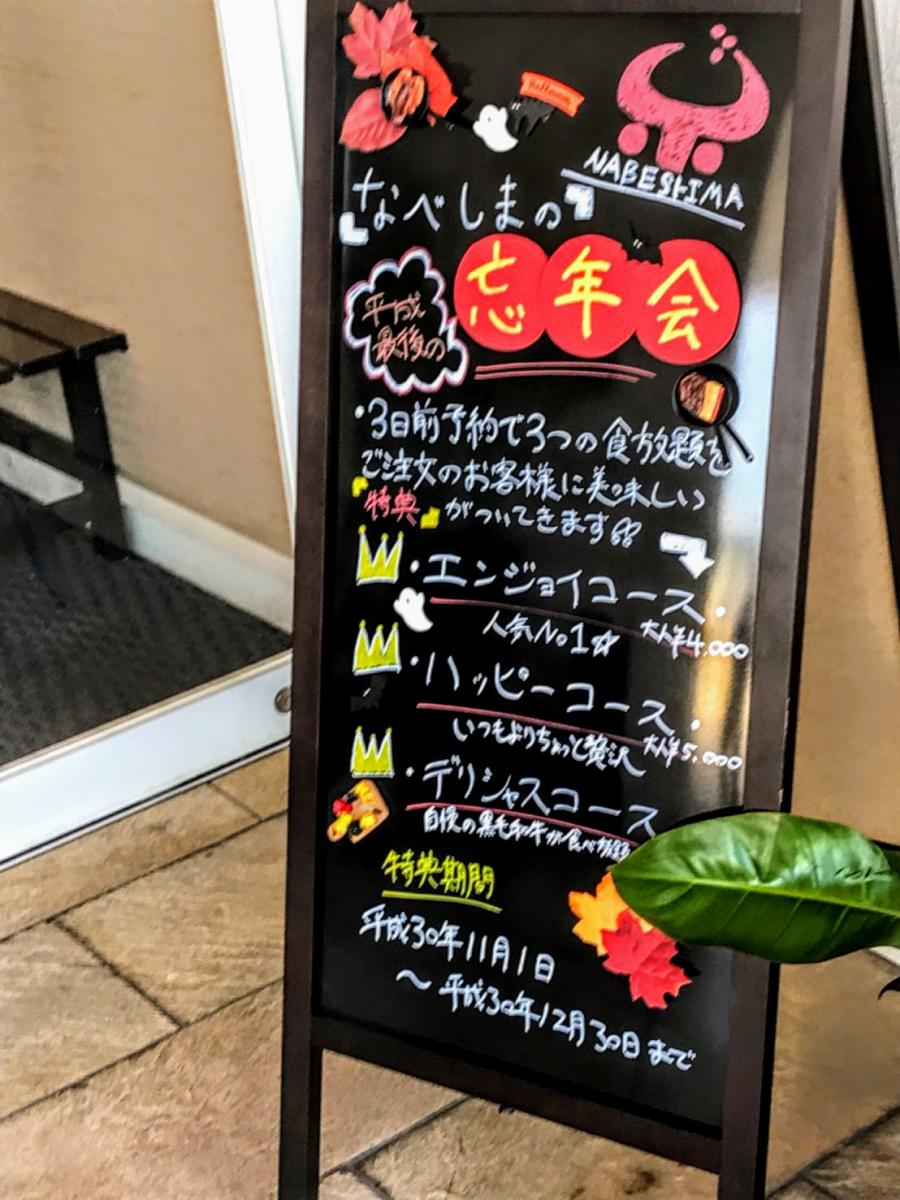 Halloween
NABESHIMA
なべしまの
忘年会
平成
最後の
・3日前予約で3つの食放題を
ご注文のお客様に美味しい
特典がついてきます
・エンジョイコース・
人気No1☆ 大人¥4,000
・ハッピーコース・
いつもよりちょっと贅沢 大人¥5,000
・デリシャスコース
自慢の黒毛和牛が食べ放題
特典期間
平成30年11月1日
～平成30年12月30日まで